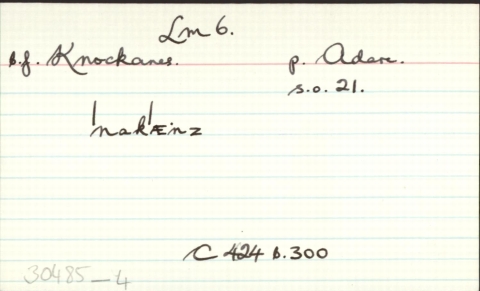 Lm 6.
b.f. Knockanes. p. Adare.
s.o. 21.
ˈnakˈÆːnz
C 424 B.300
30485-4